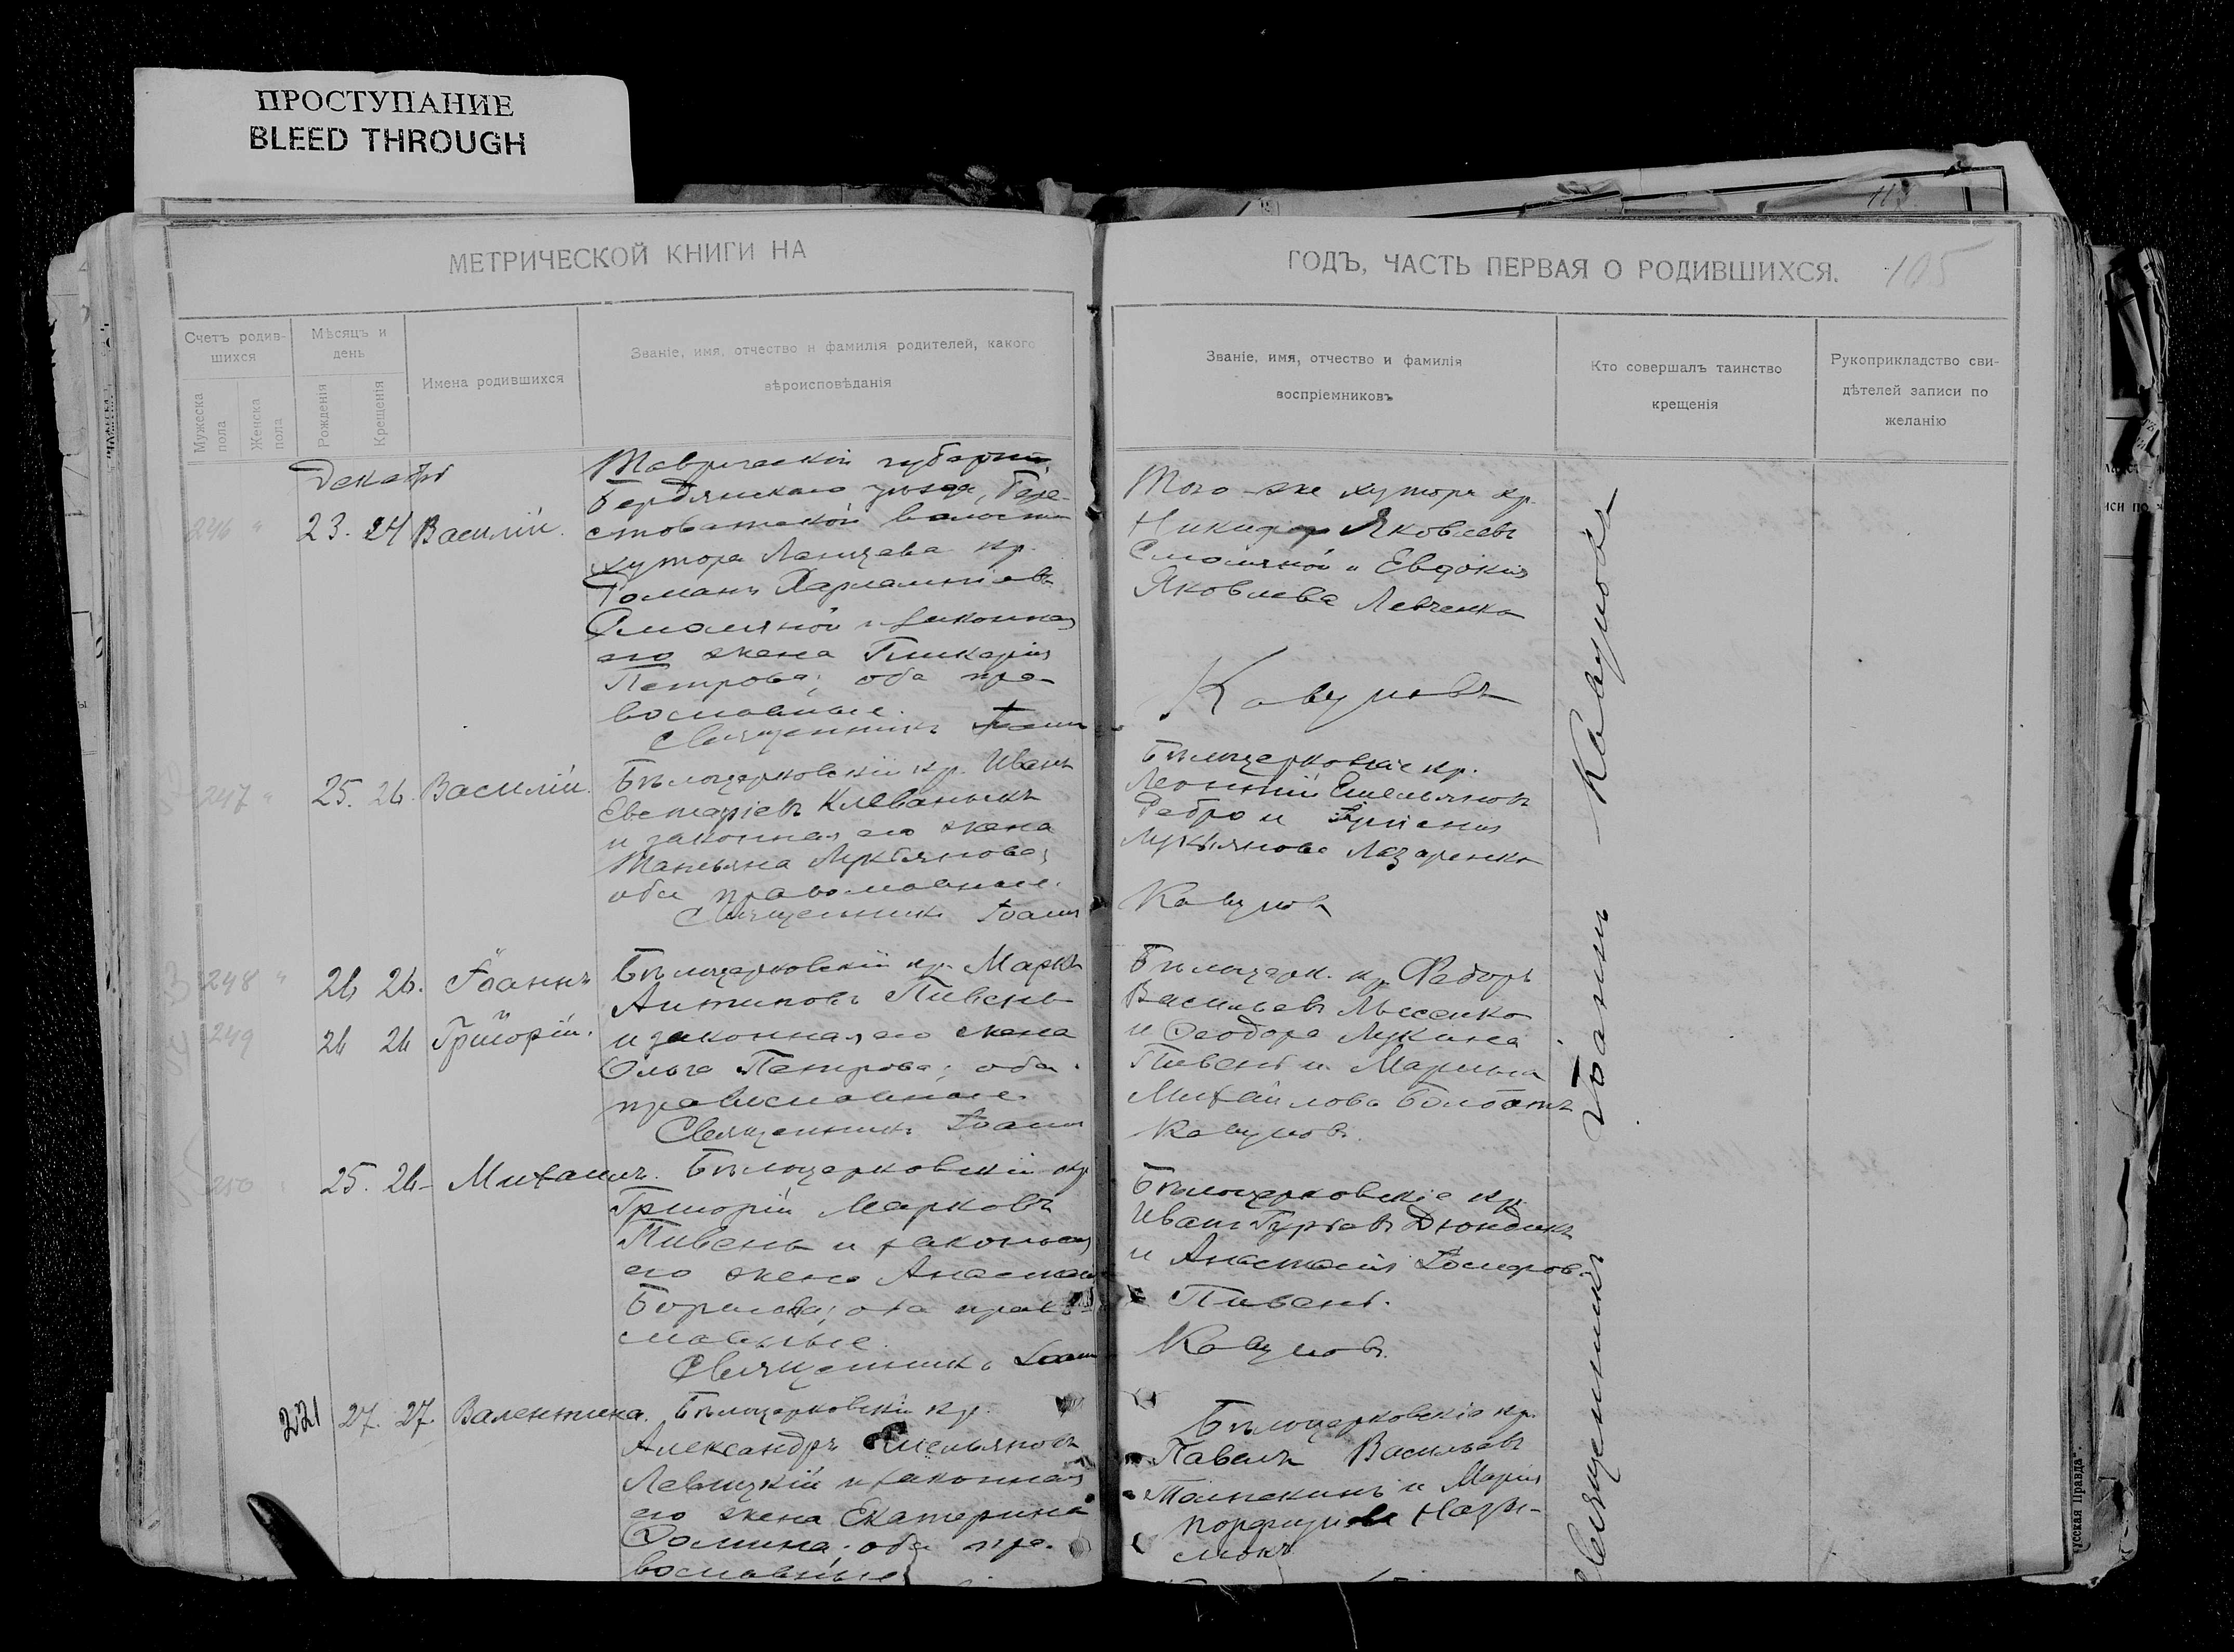 ПРОСТУПАНИЕ
BLEED THROUGH
МЕТРИЧЕСКОЙ КНИГИ НА
Счетъ родив-
шихся
Мужеска
пола
Женска
пола
Мѣсяцъ и
день
Рожденія
Крещенія
Имена родившихся
Званіе, имя, отчество и фамилія родителей, какого
вѣроисповѣданія
ГОДЪ, ЧАСТЬ ПЕРВАЯ О РОДИВШИХСЯ. 105
Званіе, имя, отчество и фамилія
воспріемниковъ
Кто совершалъ таинство
крещенія
Рукоприкладство сви-
дѣтелей записи по
желанію
Декабрь
246 " 23. 24 Василій.
Таврической губерніи
Бердянскаго уѣзда, Бере-
стоватской волости
хутора кр.
Романъ Харлампіевъ
Смоляной и законная
его жена Гликерія
Петрова; оба пра-
вославные.
Священникъ Іоаннъ
Того-же хутора кр.
Никифоръ Яковлевъ
Смоляной и Евдокія
Яковлева Левченко
Кавуновъ
247 " 25. 26. Василій.
Бѣлоцерковскій кр. Иванъ
Евстафіевъ
и законная его жена
Татьяна Лукьянова;
оба православные.
Священникъ Іоаннъ
Бѣлоцерковскіе кр.
Леонтій Емельяновъ
Ребро и
Лукьянова Лазаренко
Кавуновъ
248 " 26 26. Іоаннъ
249 26 26 Григорій.
Бѣлоцерковскій кр. Маркъ
Антиповъ Пивень
и законная его жена
Ольга Петрова; оба
православные.
Священникъ Іоаннъ
Бѣлоцерк. кр. Ѳедоръ
Васильевъ Лысенко
и Ѳеодора Лукина
Пивень и Марина
Михайлова
Кавуновъ.
250 25. 26 Михаилъ.
Бѣлоцерковскій кр.
Григорій Марковъ
Пивень и законная
его жена Анастасія
Борисова; оба право-
славные.
Священникъ Іоаннъ
Бѣлоцерковскіе кр.
Иванъ Гурьевъ Дюндикъ
и Анастасія
Пивень.
Кавуновъ.
221 27. 27. Валентина.
Бѣлоцерковскій кр.
Александръ Емельяновъ
Левицкій и законная
его жена Екатерина
Ѳомина; оба пра-
вославные
Бѣлоцерковскіе кр.
Павелъ Васильевъ
и Марія
Священникъ Іоаннъ Кавуновъ